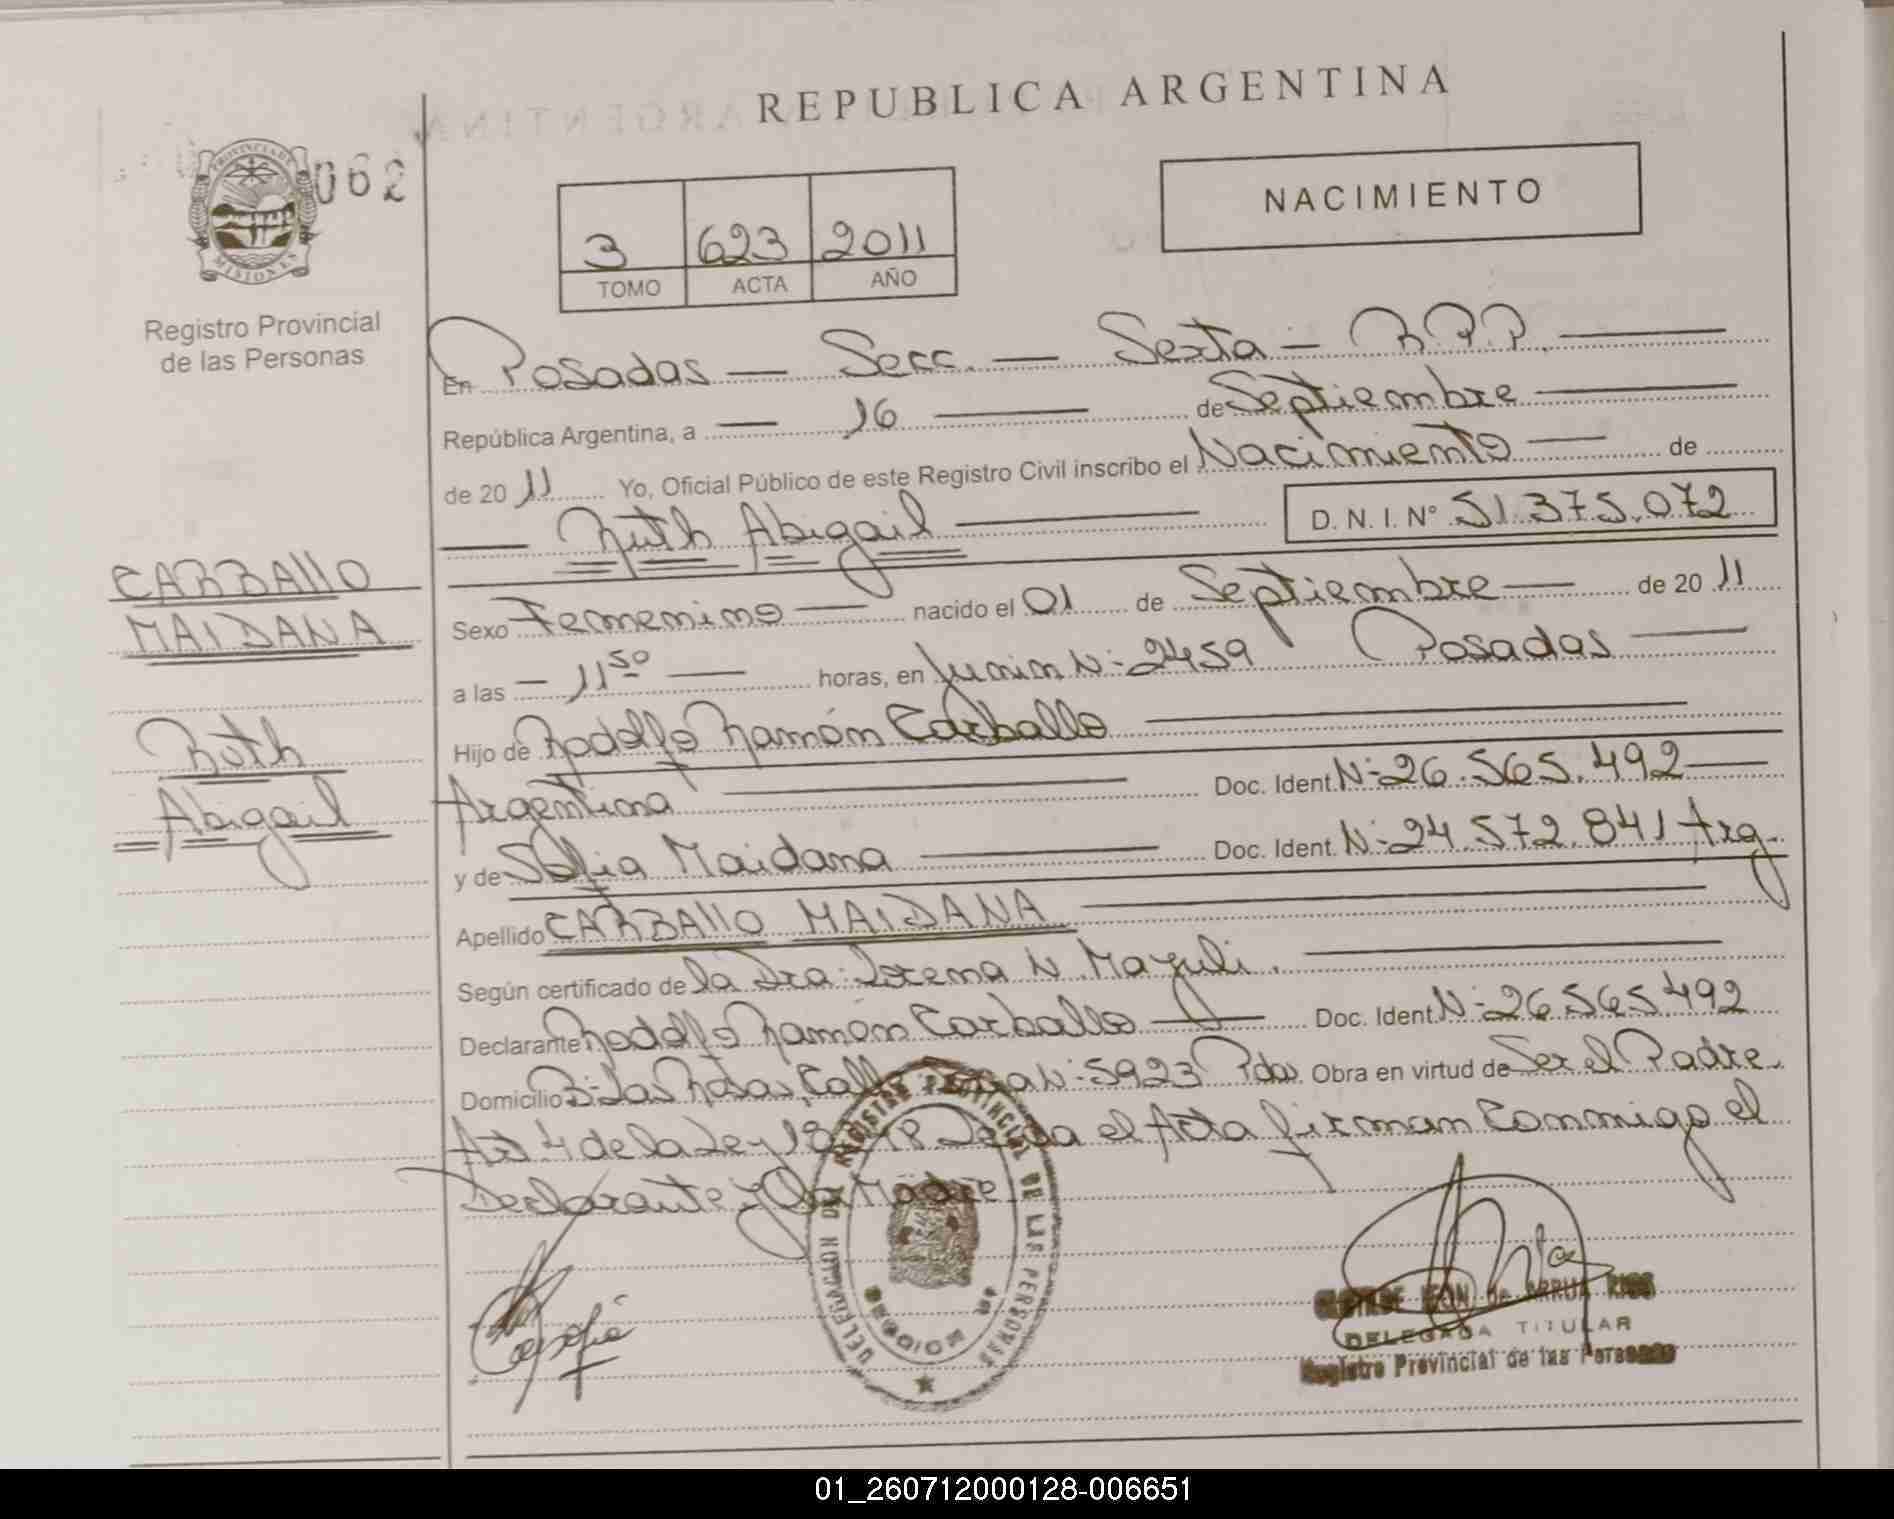 REPUBLICA ARGENTINA
PROVINCIA DE
MISIONES
062
Registro Provincial
de las Personas
3 623 2011
TOMO ACTA AÑO
NACIMIENTO
En Posadas — Secc. — Sexta — R.P.P. —
República Argentina, a — 16 — de Septiembre —
de 2011 Yo, Oficial Público de este Registro Civil inscribo el Nacimiento — de
— Ruth Abigail — D. N. I. Nº 51.375.072
CARBALLO
MAIDANA
Ruth
Abigail
Sexo Femenino — nacido el 01 de Septiembre — de 2011
a las — 11 50 — horas, en Junin N: 2459 Posadas —
Hijo de Rodolfo Ramón Carballo —
Argentina — Doc. Ident. N: 26.565.492 —
y de Sofia Maidana — Doc. Ident. N: 24.572.841 Arg.
Apellido CARBALLO MAIDANA —
Según certificado de la Dra: Lorena N. —
Declarante Rodolfo Ramón Carballo — Doc. Ident. N: 26.565.492
Domicilio B: Las Rosas, Calle N: 5923 Pdas. Obra en virtud de Ser el Padre
Art 4 de la Ley el Acta firman Conmigo el
Declarante y la Madre
DELEGACION DEL REGISTRO PROVINCIAL DE LAS PERSONAS
LEON de ARRUA
DELEGADA TITULAR
Registro Provincial de las Personas
01_260712000128-006651